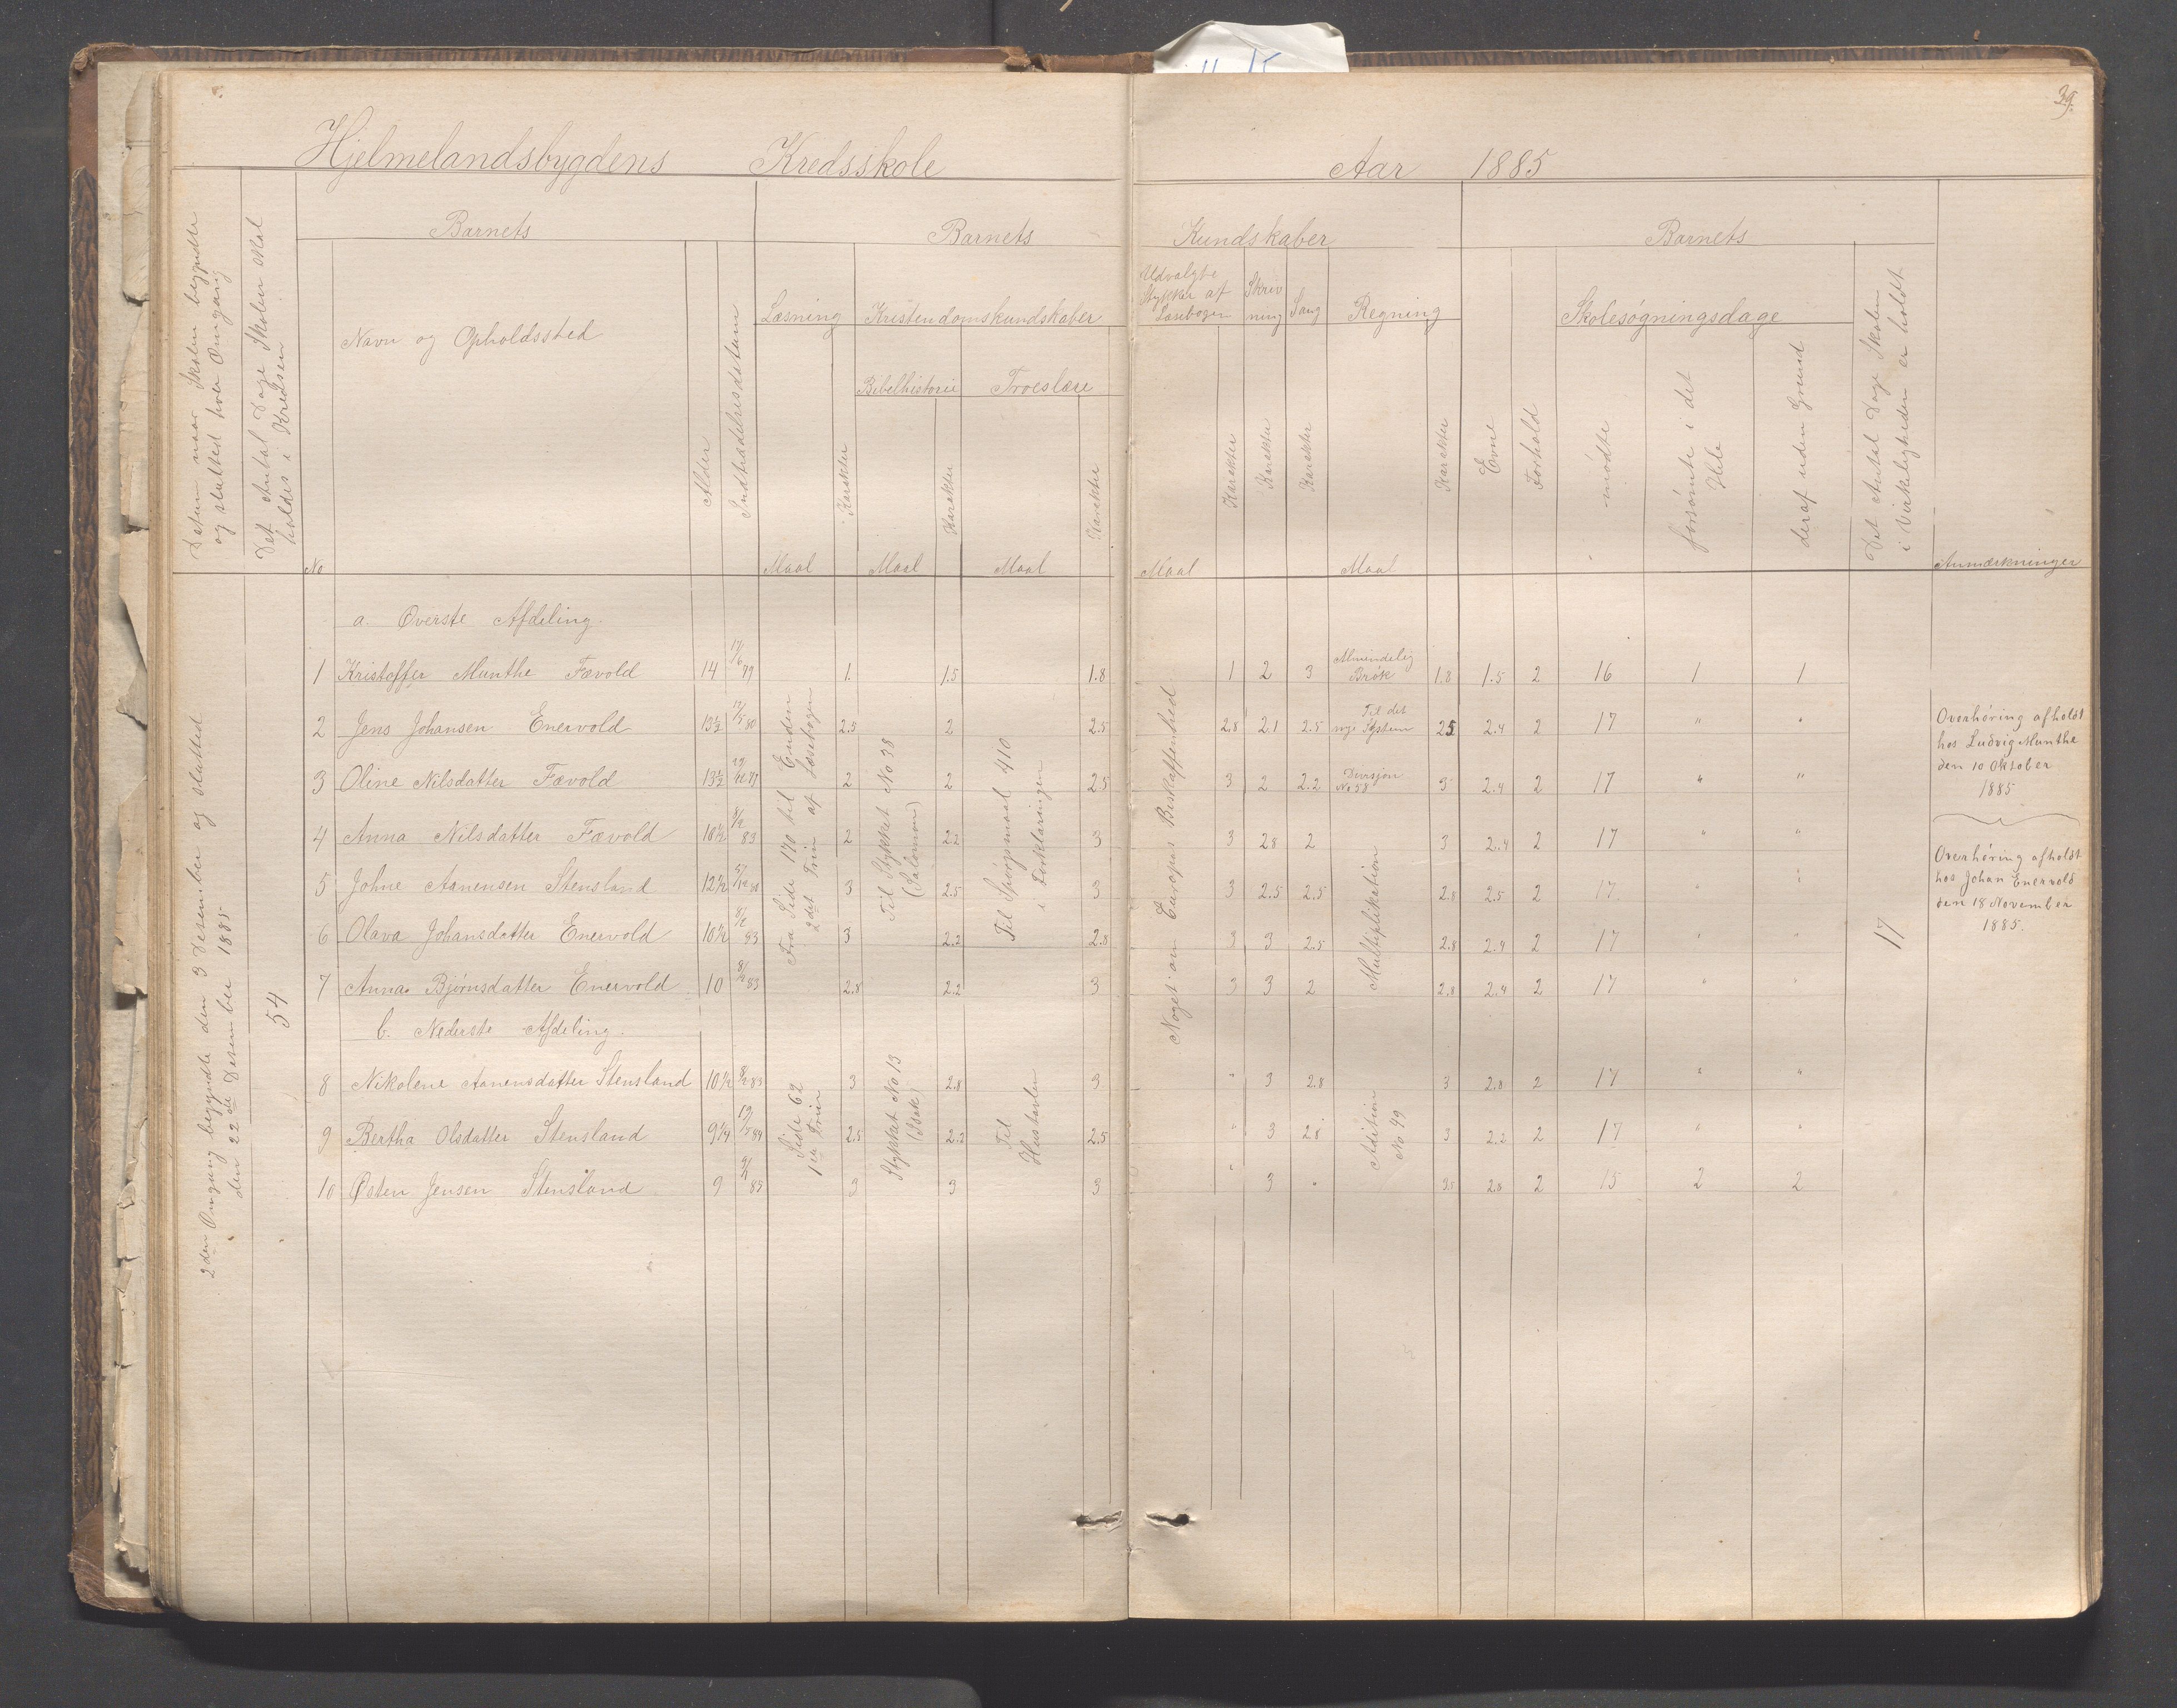 39.
Hjelmelandsbygdens Kredsskole Aar 1885
Datum naar Skolen begyndte
og slutted hver Omgang
Det Antal Dage Skolen skal
holdes i Kredsen
Barnets
Barnets Kundskaber
Barnets
No
Navn og Opholdssted
Alder
Indtrædelsesdatum
Læsning
Kristendomskundskaber
Bibelhistorie
Troeslære
Udvalgte
Stykker af
Læsebogen
Skriv
ning
Sang
Regning
Evne
Forhold
Skolesøgningsdage
mødte
forsømte i det
Hele
deraf uden Grund
Det Antal Dage Skolen
i Virkeligheden er holdt
Anmærkninger
Maal Karakter Maal Karakter Maal Karakter
Maal Karakter Karakter Karakter Maal Karakter
2den Omgang begyndte den 3 Desember og slutted
den 22de Desember 1885
54
a. Øverste Afdeling.
1 Kristoffer Munthe Fævold 14 17/6 79 1. 1.5 1.8 1 2 3 Almindelig Brøk 1.8 1.5 2 16 1 1
2 Jens Johansen Enervold 13½ 2.5 2 2.5 2.8 2.1 2.5 Til det nye System 2.5 2.4 2 17 " "
3 Oline Nilsdatter Fævold 13½ 2 2 2.5 3 2 2.2 Divisjon No 58 3 2.4 2 17 " "
4 Anna Nilsdatter Fævold 10½ 83 2 2.2 3 3 2.8 2 3 2.4 2 17 " "
5 Johne Aanensen Stensland 12½ 3 2.5 3 3 2.5 2.5 2.8 2.5 2 17. " "
6 Olava Johansdatter Enervold 10½ 83 3 2.2 2.8 3 3 2.5 2.8 2.4 2 17 " "
7 Anna Bjørnsdatter Enervold 10 83 2.8 2.2 3 3 3 2 2.8 2.4 2 17 " "
b. Nederste Afdeling.
8 Nikolene Aanensdatter Stensland 10½ 83 3 2.8 3 " 3 2.8 3 2.8 2 17 " "
9 Bertha Olsdatter Stensland 9¼ 84 2.5 2.2 2.5 " 3 2.8 3 2.2 2 17 " "
10 Østen Jensen Stensland 9 3 3 3 " 3 " 3.5 2.8 2 15 2 2
Fra Side 170 til Enden
2det Trin af Læsebogen
Til Stykket No 38
(Salomon)
Til Spørgsmaal 410
i Forklaringen
Noget om Europas Beskaffenhed
Multiplikation
Side 62
1te Trin
Stykket No 13
(Isak)
Til
Hustavlen
Adition
No 99
17
Overhøring afholdt
hos Ludvig Munthe
den 10 Oktober
1885
Overhøring afholdt
hos Johan Enervold
den 18 November
1885.